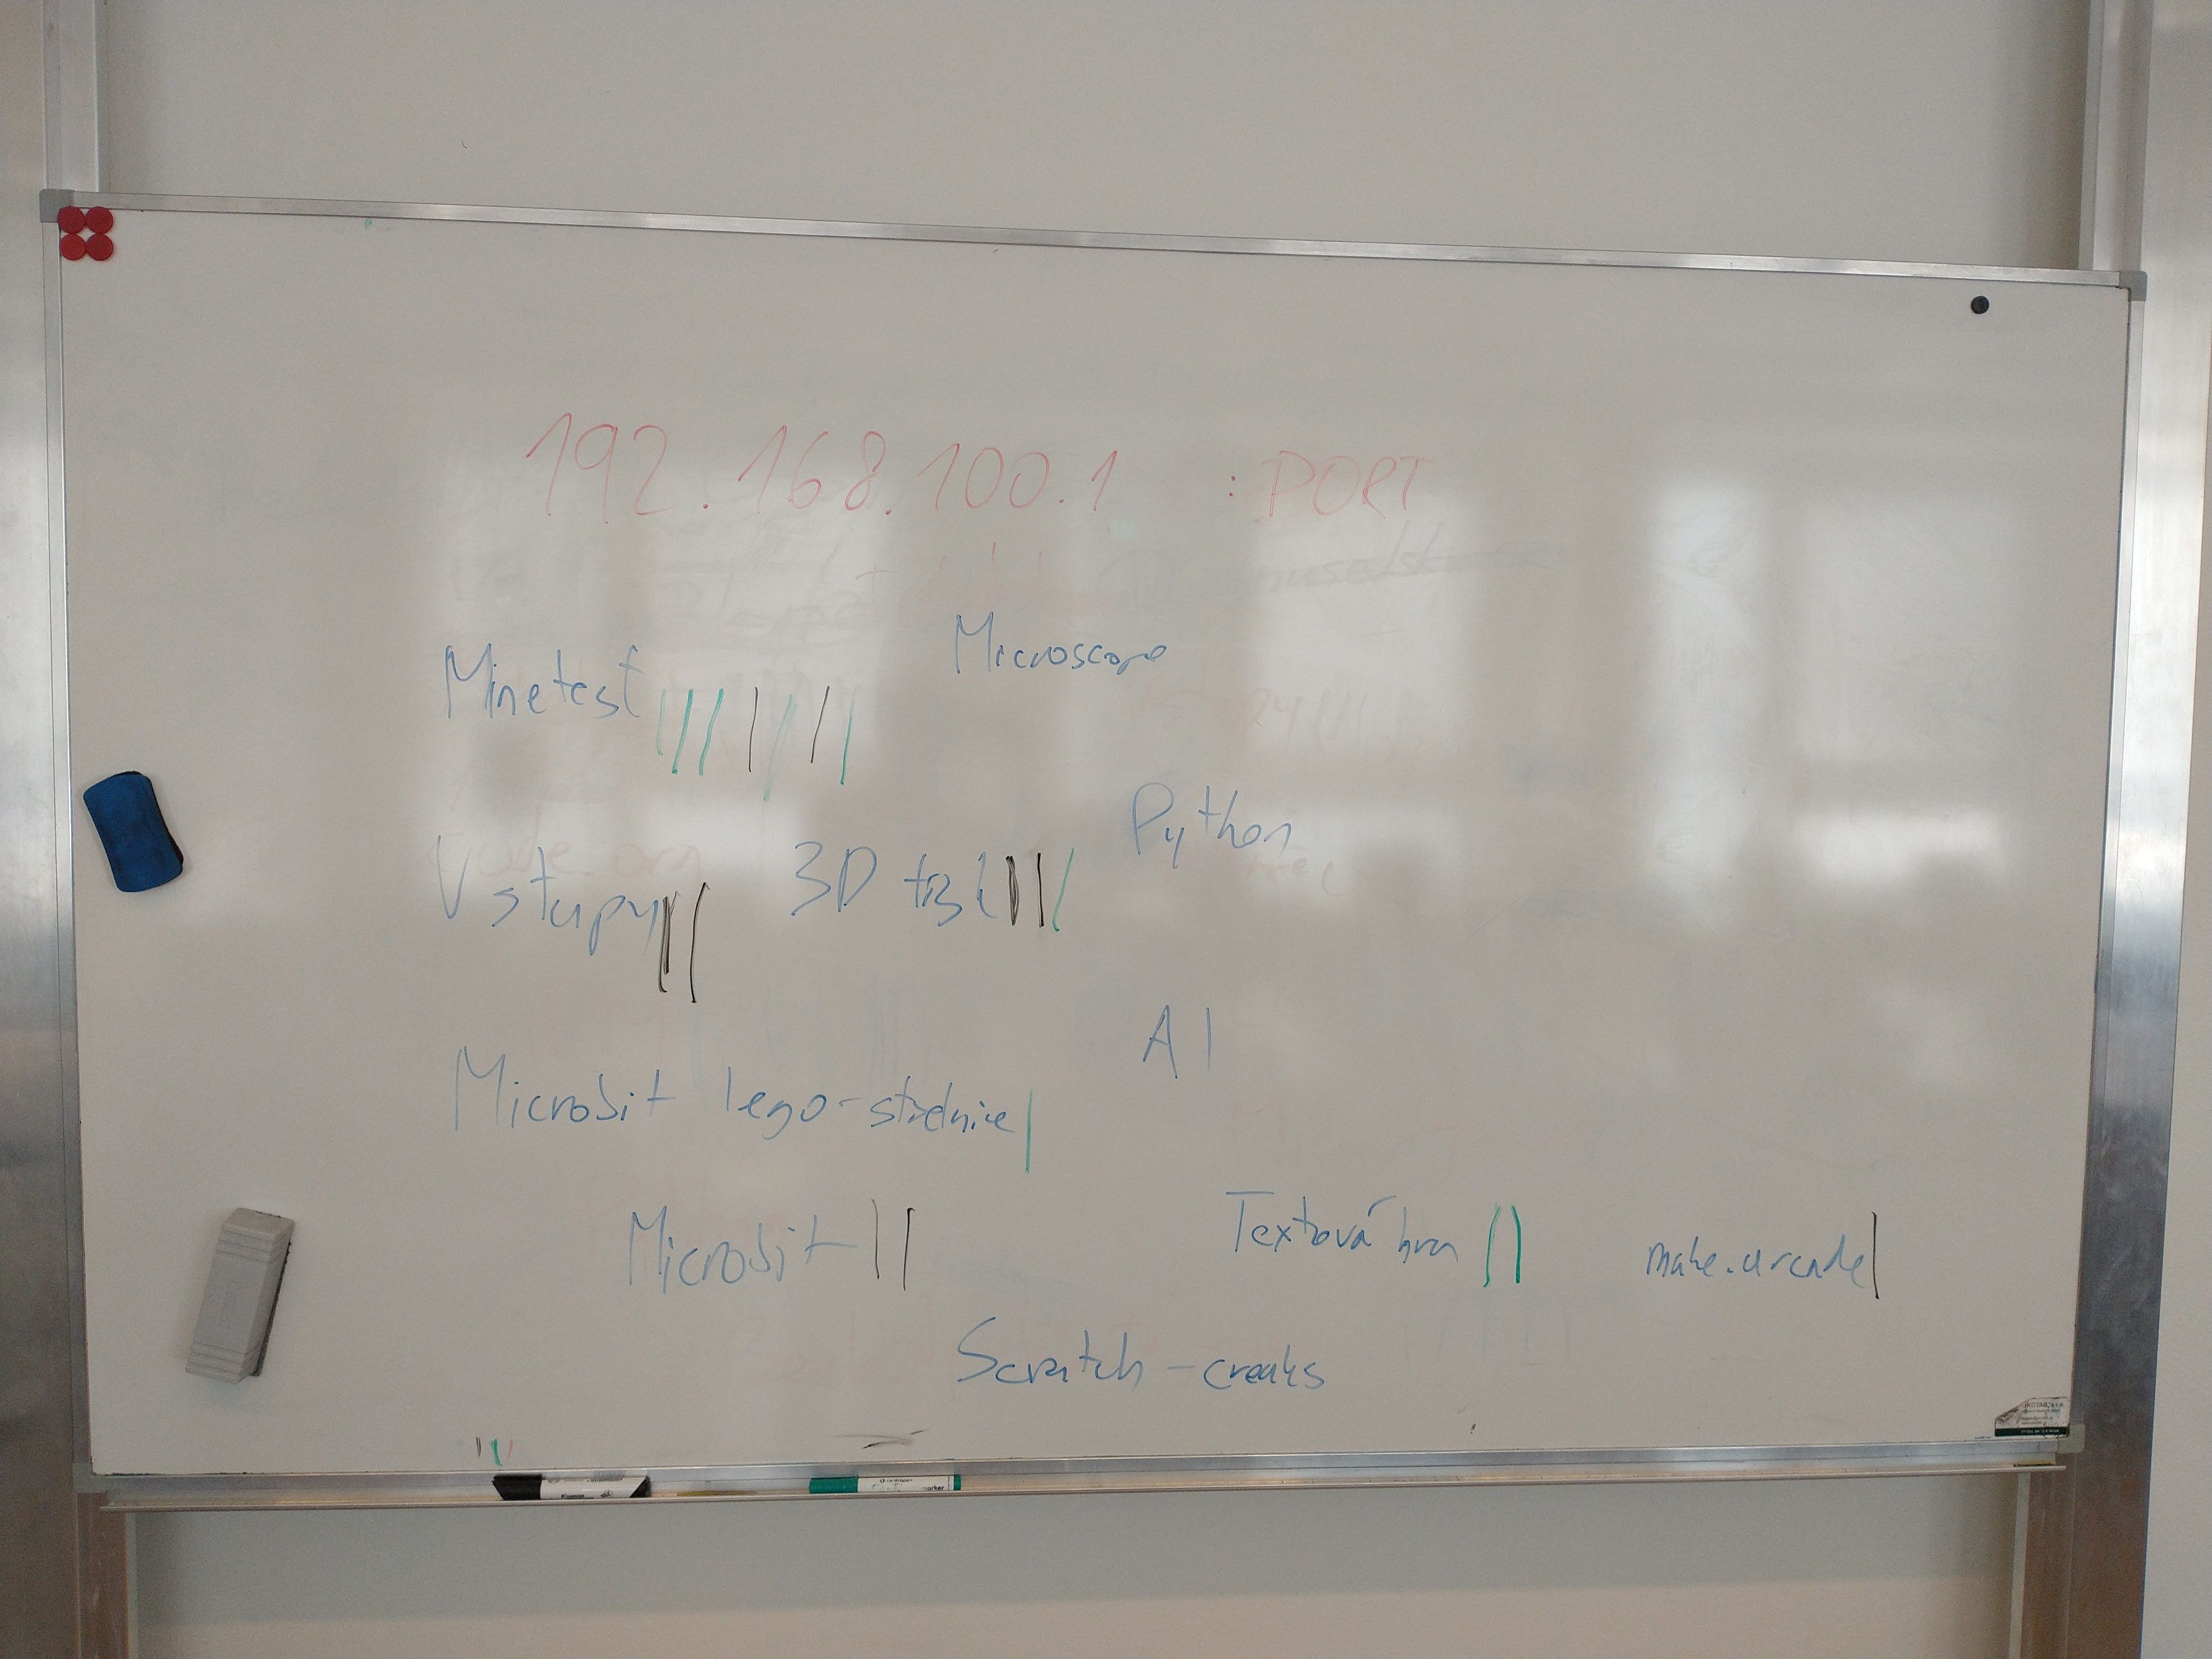 192.168.100.1 : PORT
Microscope
Minetest
Python
Vstupy 3D tisk
AI
Microbit lego-střelnice
Microbit
Textová hra
make.arcade
Scratch - creaks